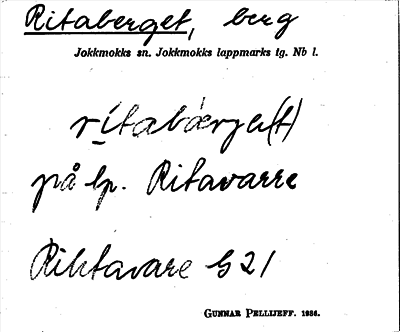 Ritaberget, berg
Jokkmokks sn. Jokkmokks lappmarks tg. Nb l.
rítabǽrjet(t)
på lp. Ritavarre
Rihtavare G 21
GUNNAR PELLIJEFF. 1936.